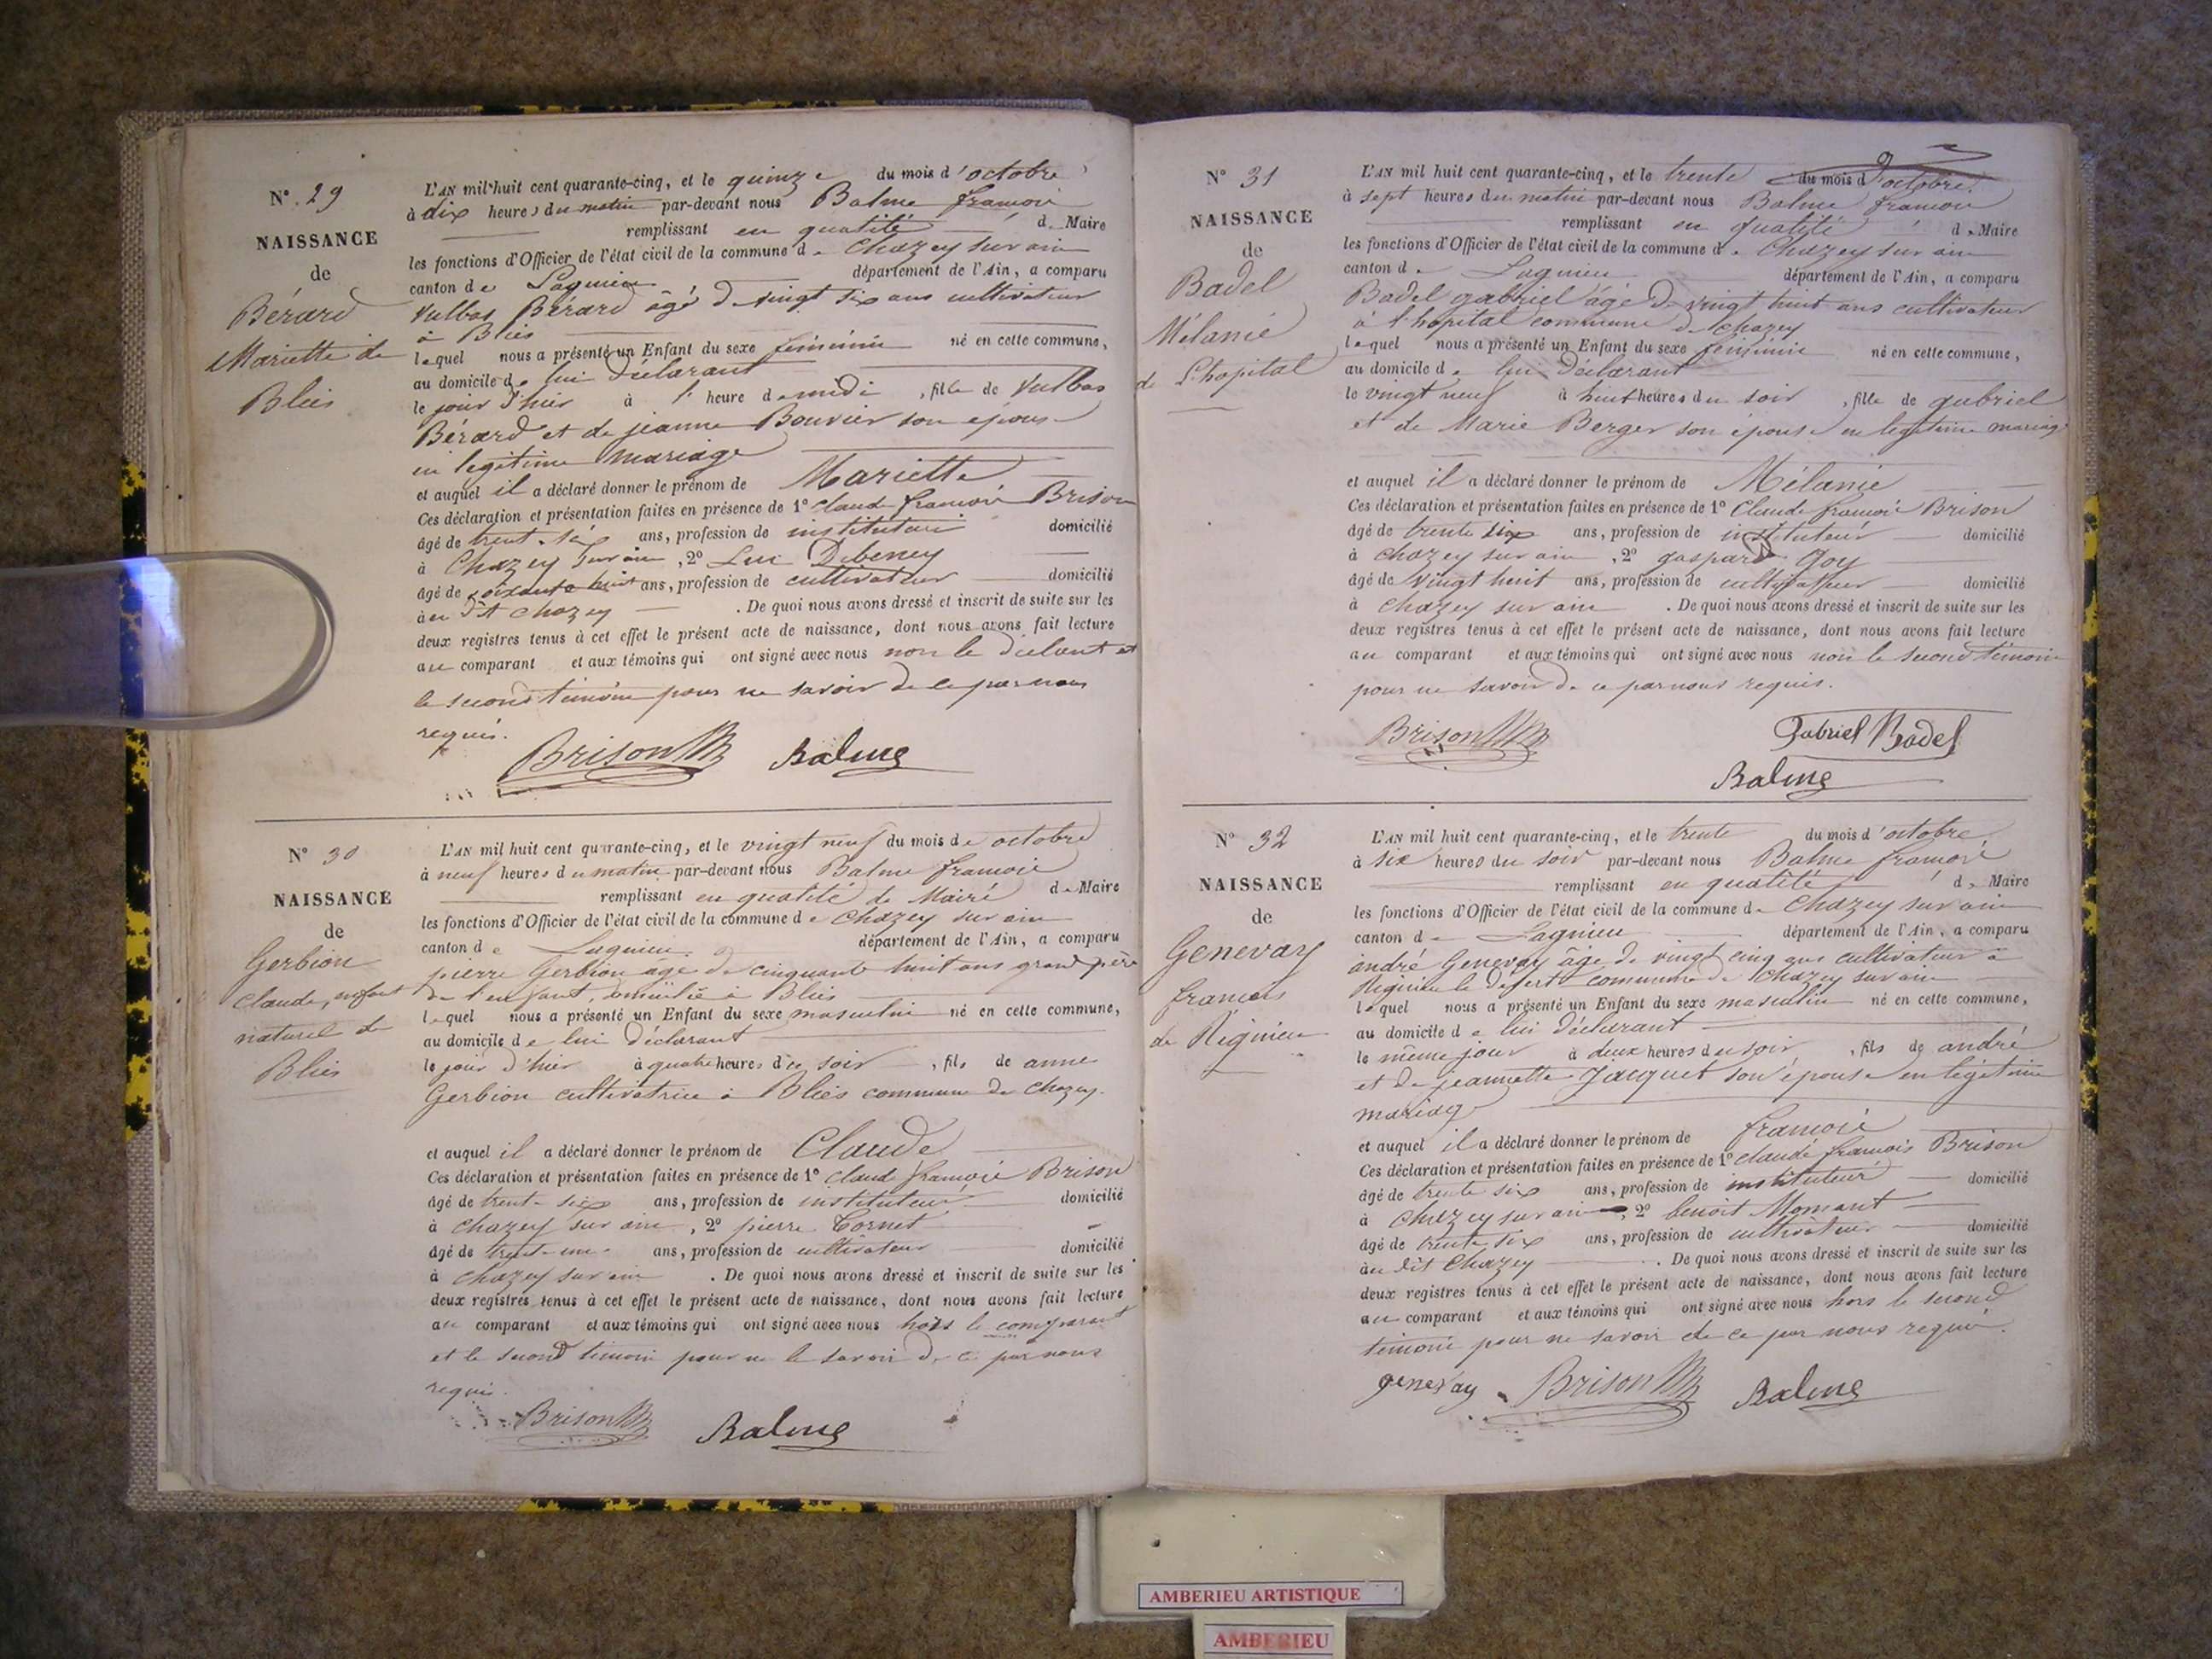 N°. 29
NAISSANCE
de
Bérard
Mariette de
Bliès
L'AN mil huit cent quarante-cinq, et le quinze du mois d'octobre
à dix heures du matin par-devant nous Balme françois
remplissant en qualité de Maire
les fonctions d'Officier de l'état civil de la commune de Chazey sur ain
canton de Lagnieu département de l'Ain, a comparu
Vulbas Bérard âgé de vingt six ans cultivateur
à Bliès
lequel nous a présenté un Enfant du sexe féminin né en cette commune,
au domicile de lui déclarant
le jour d'hier à l' heure de midi , fille de Vulbas
Bérard et de jeanne Bouvier son épouse
en legitime mariage
et auquel il a déclaré donner le prénom de Mariette
Ces déclaration et présentation faites en présence de 1° Claude françois Brison
âgé de trente six ans, profession de instituteur domicilié
à Chazey sur ain , 2° Luc Debeney
âgé de soixante huit ans, profession de cultivateur domicilié
à au dit Chazey . De quoi nous avons dressé et inscrit de suite sur les
deux registres tenus à cet effet le présent acte de naissance, dont nous avons fait lecture
au comparant et aux témoins qui ont signé avec nous non le déclarant et
le second témoin pour ne savoir de ce par nous
requis.
Brison Balme
N° 30
NAISSANCE
de
Gerbion
Claude, enfant
naturel de
Bliès
L'AN mil huit cent quarante-cinq, et le vingt neuf du mois de octobre
à neuf heures du matin par-devant nous Balme françois
remplissant en qualité de Maire de Maire
les fonctions d'Officier de l'état civil de la commune de Chazey sur ain
canton de Lagnieu département de l'Ain, a comparu
pierre Gerbion âgé de cinquante huit ans grand père
de l'enfant, domicilié à Bliès
lequel nous a présenté un Enfant du sexe masculin né en cette commune,
au domicile de lui déclarant
le jour d'hier à quatre heures du soir , fils de anne
Gerbion cultivatrice à Bliès commune de Chazey.
et auquel il a déclaré donner le prénom de Claude
Ces déclaration et présentation faites en présence de 1° Claude françois Brison
âgé de trente six ans, profession de instituteur domicilié
à Chazey sur ain , 2° pierre Cornet
âgé de trente une ans, profession de cultivateur domicilié
à Chazey sur ain . De quoi nous avons dressé et inscrit de suite sur les
deux registres tenus à cet effet le présent acte de naissance, dont nous avons fait lecture
au comparant et aux témoins qui ont signé avec nous hors le comparant
et le second témoin pour ne le savoir de ce par nous
requis.
Brison Balme
N° 31
NAISSANCE
de
Badel
Mélanie
de L'hopital
L'AN mil huit cent quarante-cinq, et le trente du mois d'octobre
à sept heures du matin par-devant nous Balme françois
remplissant en qualité de Maire
les fonctions d'Officier de l'état civil de la commune de Chazey sur ain
canton de Lagnieu département de l'Ain, a comparu
Badel gabriel âgé de vingt huit ans cultivateur
à l'hopital commune de Chazey
lequel nous a présenté un Enfant du sexe féminin né en cette commune,
au domicile de lui déclarant
le vingt neuf à huit heures du soir , fille de gabriel
et de Marie Berger son épouse en legitime mariage
et auquel il a déclaré donner le prénom de Mélanie
Ces déclaration et présentation faites en présence de 1° Claude françois Brison
âgé de trente six ans, profession de instituteur domicilié
à Chazey sur ain , 2° gaspard Goy
âgé de vingt huit ans, profession de cultivateur domicilié
à Chazey sur ain . De quoi nous avons dressé et inscrit de suite sur les
deux registres tenus à cet effet le présent acte de naissance, dont nous avons fait lecture
au comparant et aux témoins qui ont signé avec nous non le second témoin
pour ne savoir de ce par nous requis.
Brison Gabriel Badel
Balme
N° 32
NAISSANCE
de
Genevay
françois
de Rignieu
L'AN mil huit cent quarante-cinq, et le trente du mois d'octobre
à six heures du soir par-devant nous Balme françois
remplissant en qualité de Maire
les fonctions d'Officier de l'état civil de la commune de Chazey sur ain
canton de Lagnieu département de l'Ain, a comparu
andré Genevay âgé de vingt cinq ans cultivateur à
Rignieu le désert commune de Chazey sur ain
lequel nous a présenté un Enfant du sexe masculin né en cette commune,
au domicile de lui déclarant
le même jour à deux heures du soir , fils de andré
et de jeannette Jacquet son épouse en legitime
mariage
et auquel il a déclaré donner le prénom de françois
Ces déclaration et présentation faites en présence de 1° Claude françois Brison
âgé de trente six ans, profession de instituteur domicilié
à Chazey sur ain , 2° benoit Momant
âgé de trente six ans, profession de cultivateur domicilié
à au dit Chazey . De quoi nous avons dressé et inscrit de suite sur les
deux registres tenus à cet effet le présent acte de naissance, dont nous avons fait lecture
au comparant et aux témoins qui ont signé avec nous hors le second
témoin pour ne savoir de ce par nous requis.
genevay Brison Balme
AMBERIEU ARTISTIQUE
AMBERIEU